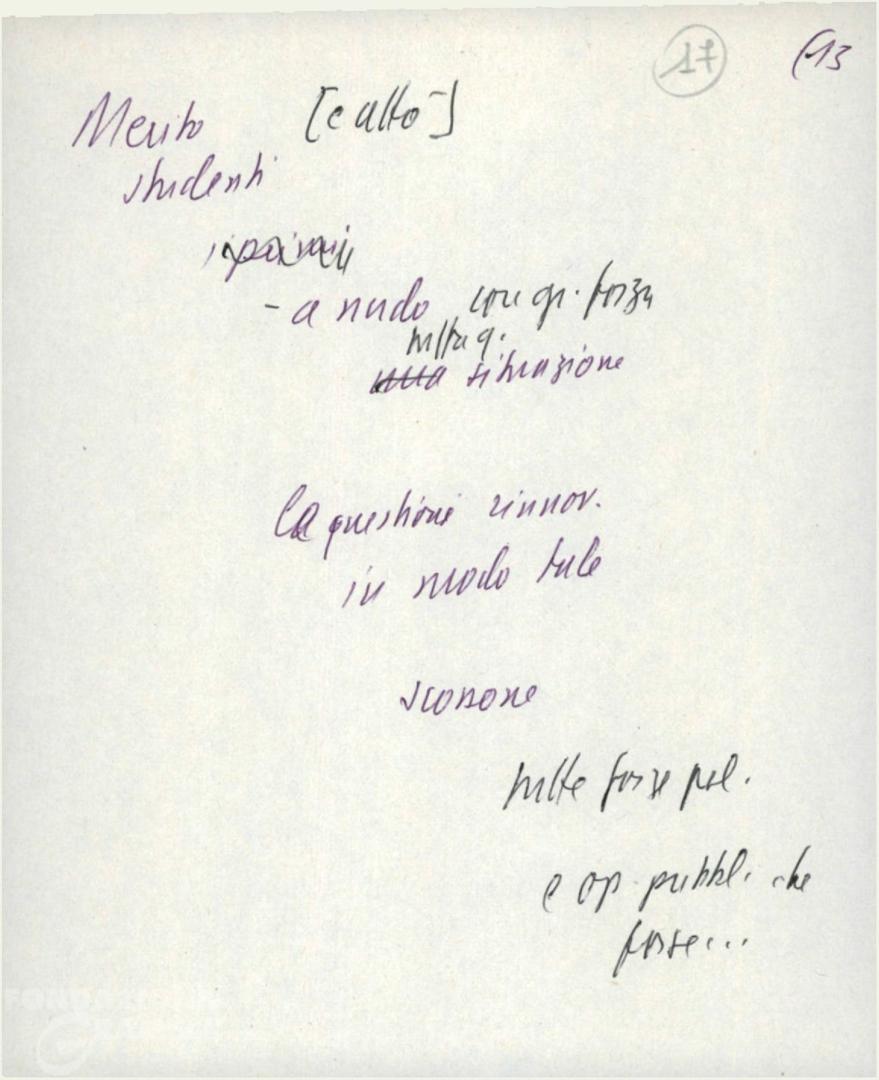 17 (13
Merito [e altro]
studenti
- a nudo con gr. forza
tutta q.
una situazione
la questione rinnov.
in modo tale
scossone
tutte forze pol.
e op. pubbl. che
forse...